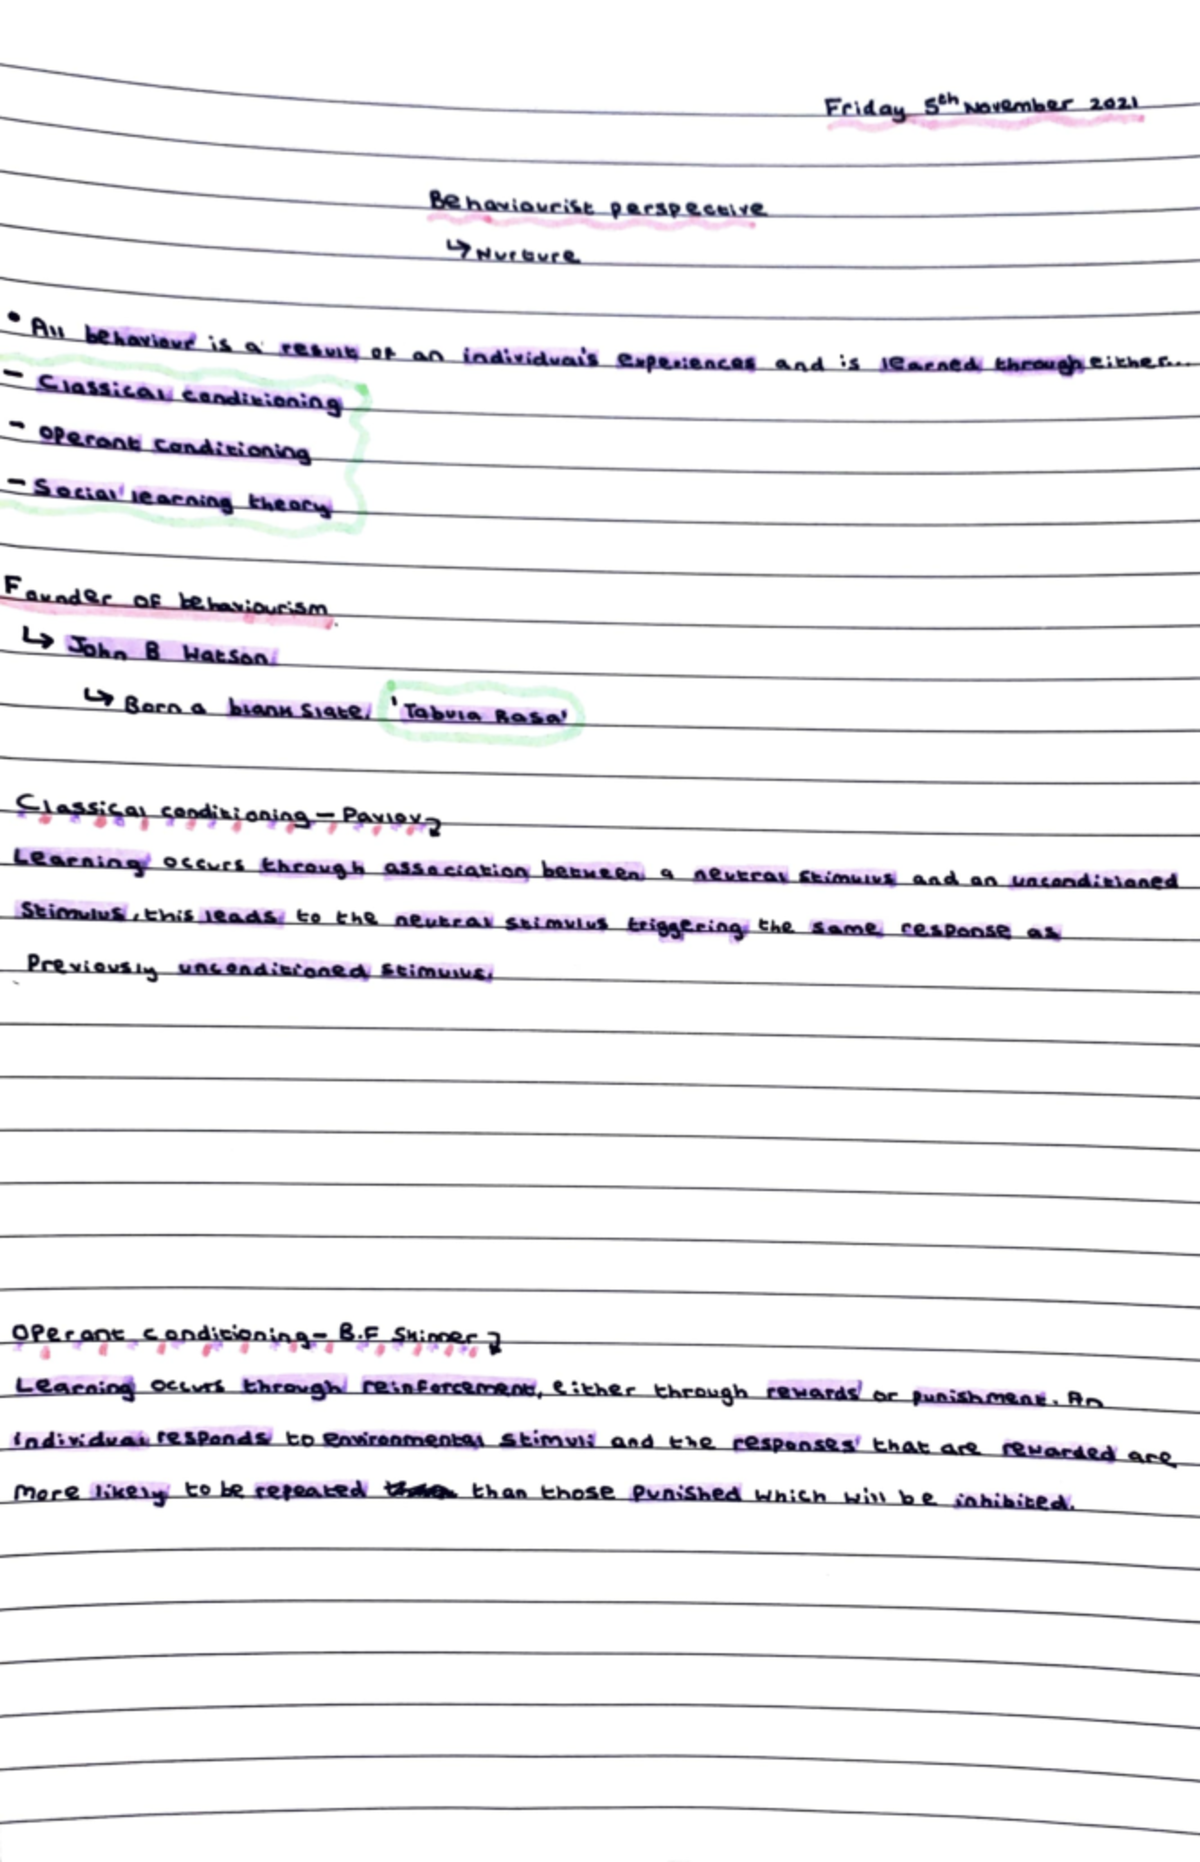 Friday 5th November 2021
Behaviourist perspective
↳ Nurture
• All behaviour is a result of an individual's experiences and is learned through either...
- Classical conditioning
- Operant Conditioning
- Social learning theory
Founder of behaviourism.
↳ John B Watson
↳ Born a blank slate, 'Tabula Rasa'
Classical conditioning - Pavlov
Learning occurs through association between a neutral stimulus and an unconditioned
Stimulus, this leads to the neutral stimulus triggering the same response as
Previously unconditioned stimulus.
Operant conditioning - B.F Skinner
Learning occurs through reinforcement, either through rewards or punishment. An
individual responds to environmental stimuli and the responses that are rewarded are
more likely to be repeated than those punished which will be inhibited.